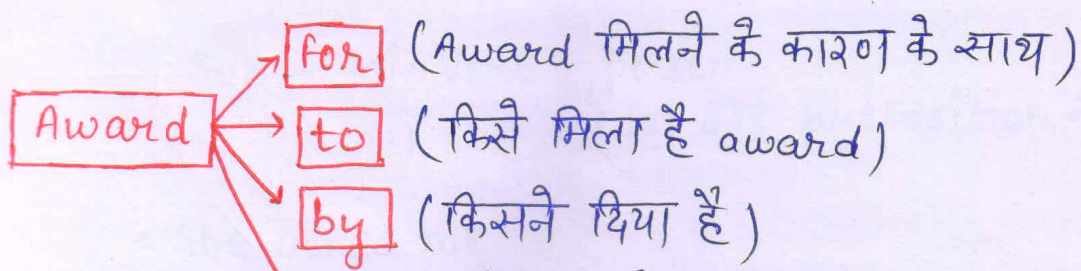 Award
for (Award मिलने के कारण के साथ)
to (किसे मिला है award)
by (किसने दिया है)